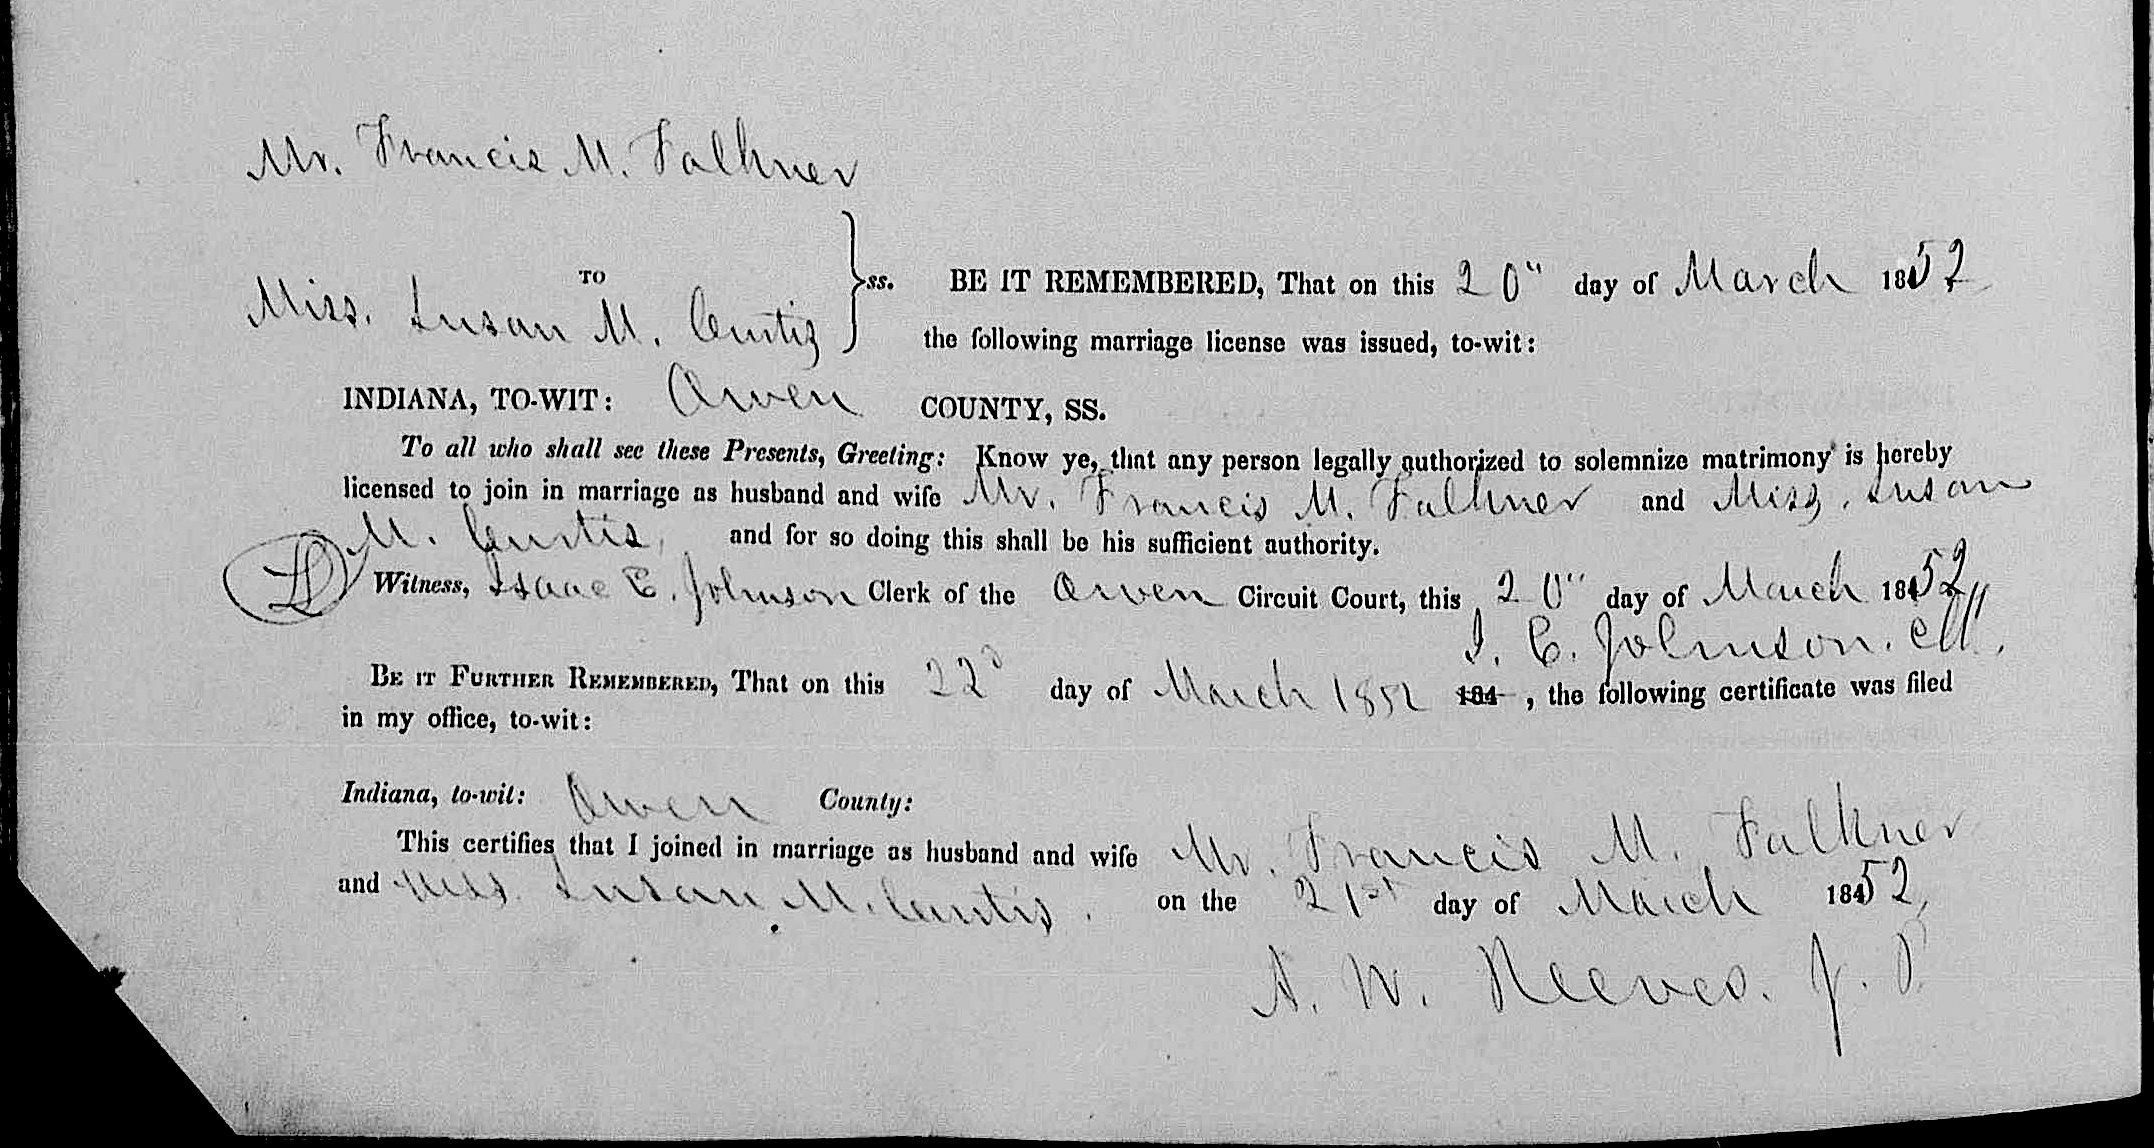 Mr. Francis M. Falkner
TO
Miss. Susan M. Curtis
ss. BE IT REMEMBERED, That on this 20" day of March 1852
the following marriage license was issued, to-wit:
INDIANA, TO-WIT: Owen COUNTY, SS.
To all who shall see these Presents, Greeting: Know ye, that any person legally authorized to solemnize matrimony is hereby
licensed to join in marriage as husband and wife Mr. Francis M. Falkner and Miss. Susan
M. Curtis, and for so doing this shall be his sufficient authority.
Witness, Isaac E. Johnson Clerk of the Owen Circuit Court, this 20" day of March 1852
I. E. Johnson. Clk.
BE IT FURTHER REMEMBERED, That on this 22d day of March 1852 184 , the following certificate was filed
in my office, to-wit:
Indiana, to-wit: Owen County:
This certifies that I joined in marriage as husband and wife Mr. Francis M. Falkner
and Miss. Susan M. Curtis. on the 21st day of March 1852,
A. W. Reeves. J. P.